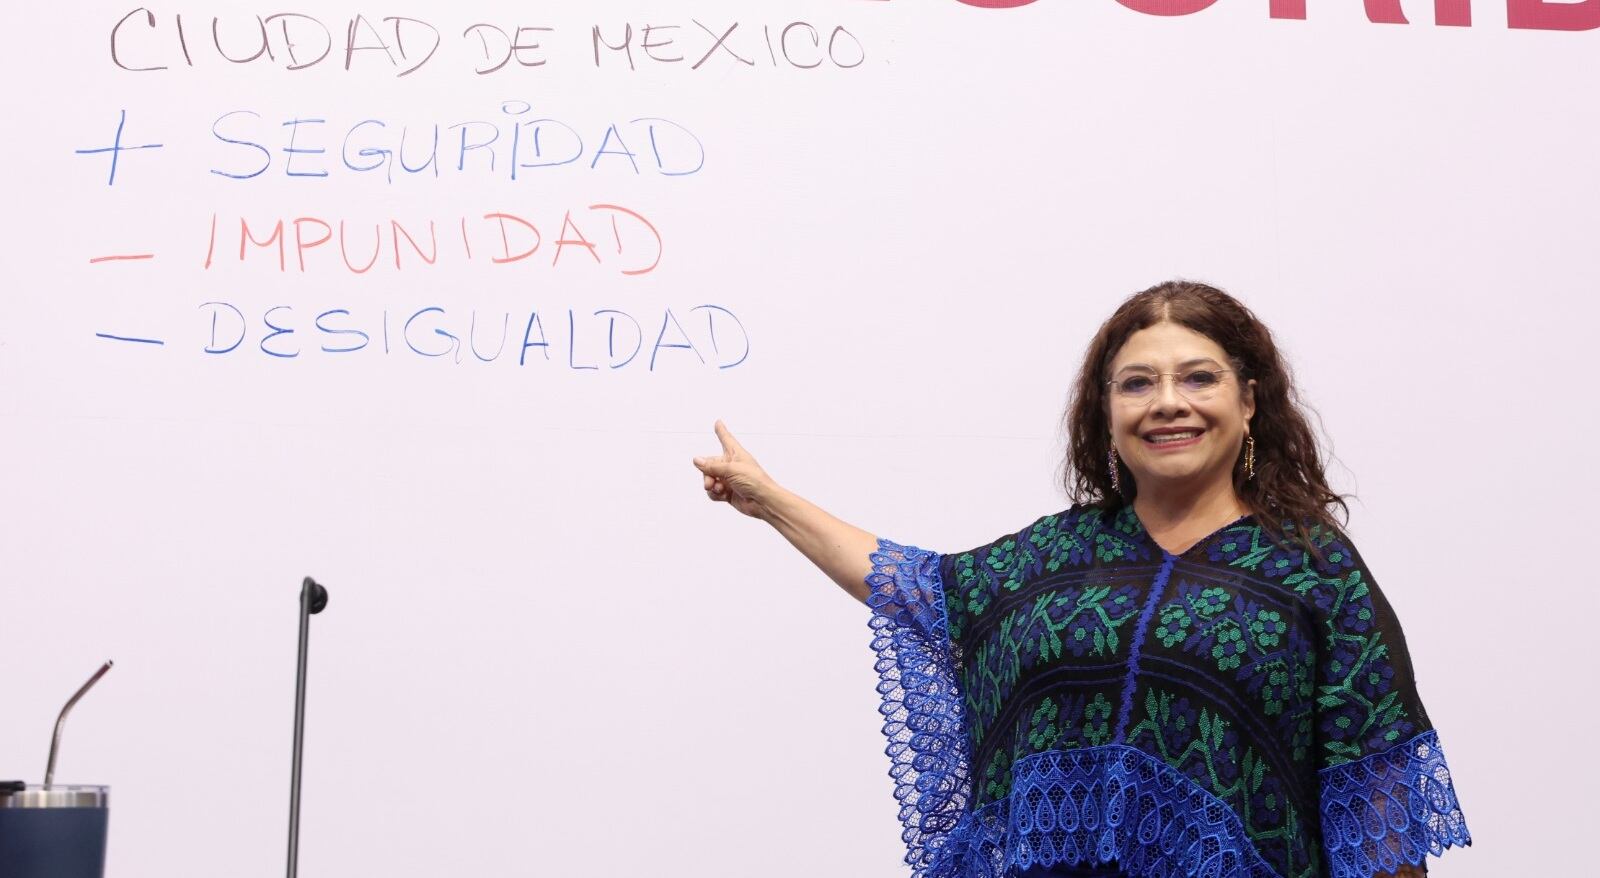 CIUDAD DE MEXICO.
+ SEGURIDAD
- IMPUNIDAD
- DESIGUALDAD